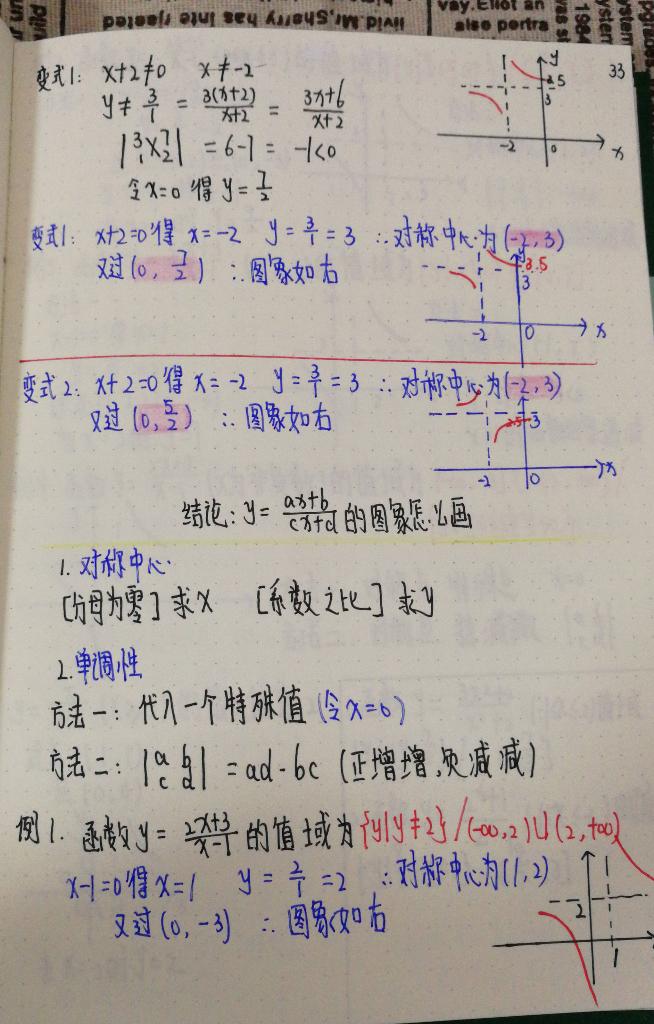 livid, Mr. Sherry has inte rjected
vay. Eliot an
also portra
1984
33
变式1: x+2≠0 x≠-2
y≠3/1 = 3(x+2)/(x+2) = (3x+6)/(x+2)
|3 7 1 2| = 6-7 = -1<0
令x=0 得 y=7/2
y 3.5 3 -2 0 x
变式1: x+2=0得 x=-2 y=3/1=3 ∴对称中心为(-2,3)
又过(0, 7/2) ∴图象如右
y 3.5 3 -2 0 x
变式2: x+2=0得 x=-2 y=3/1=3 ∴对称中心为(-2,3)
又过(0, 5/2) ∴图象如右
2.5 3 -2 0 x
结论: y=(ax+b)/(cx+d) 的图象怎么画
1. 对称中心
[分母为零] 求x [系数之比] 求y
2. 单调性
方法一: 代入一个特殊值 (令x=0)
方法二: |a b c d| = ad-bc (正增增,负减减)
例1. 函数y=(2x+3)/(x-1)的值域为{y|y≠2}/(-∞,2)∪(2,+∞)
x-1=0得x=1 y=2/1=2 ∴对称中心为(1,2)
又过(0,-3) ∴图象如右
2 1